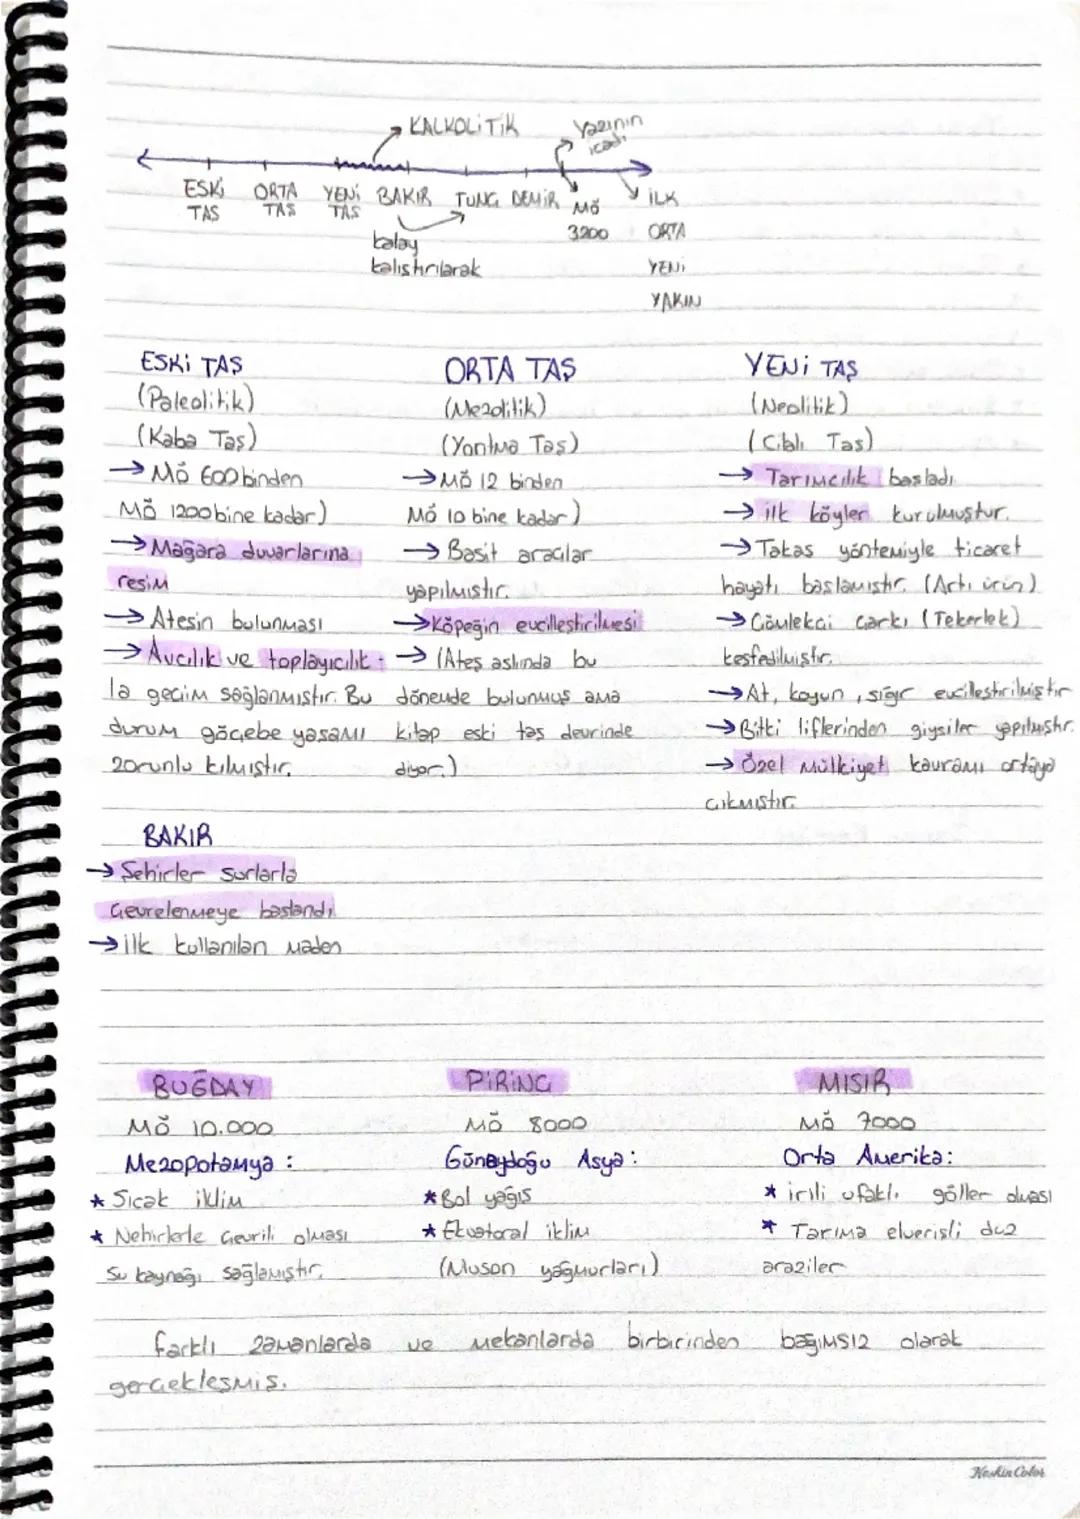 KALKOLİTİK
Yazının
icadı
ESKİ TAŞ
ORTA TAŞ
YENİ TAŞ
BAKIR
TUNÇ
DEMİR
MÖ
3200
İLK
ORTA
YENİ
YAKIN
kalay
kalıştırılarak
ESKİ TAŞ
(Paleolitik)
(Kaba Taş)
→ MÖ 600 binden
MÖ 1200 bine kadar)
→ Mağara duvarlarına
resim
→ Ateşin bulunması
→ Avcılık ve toplayıcılık-
la geçim sağlanmıştır. Bu
durum göçebe yaşamı
zorunlu kılmıştır.
ORTA TAŞ
(Mezolitik)
(Yontma Taş)
→ MÖ 12 binden
MÖ 10 bine kadar)
→ Basit araçlar
yapılmıştır.
→ Köpeğin evcilleştirilmesi
→ (Ateş aslında bu
dönemde bulunmuş ama
kitap eski taş devrinde
diyor.)
YENİ TAŞ
(Neolitik)
(Cilalı Taş)
→ Tarımcılık başladı
→ ilk köyler kurulmuştur.
→ Takas yöntemiyle ticaret
hayatı başlamıştır. (Artı ürün)
→ Çömlekçi çarkı (Tekerlek)
keşfedilmiştir.
→ At, koyun, sığır evcilleştirilmiştir
→ Bitki liflerinden giysiler yapılmıştır.
→ Özel Mülkiyet kavramı ortaya
çıkmıştır.
BAKIR
→ Şehirler surlarla
çevrelenmeye başlandı
→ ilk kullanılan maden
BUĞDAY
MÖ 10.000
Mezopotamya :
* Sıcak iklim
* Nehirlerle çevrili olması
Su kaynağı sağlamıştır.
PİRİNÇ
MÖ 8000
Güneydoğu Asya :
* Bol yağış
* Ekvatoral iklim
(Muson yağmurları)
MISIR
MÖ 7000
Orta Amerika:
* irili ufaklı göller olması
* Tarıma elverişli düz
araziler
farklı zamanlarda ve mekanlarda birbirinden bağımsız olarak
gerçekleşmiş.
Keskin Color